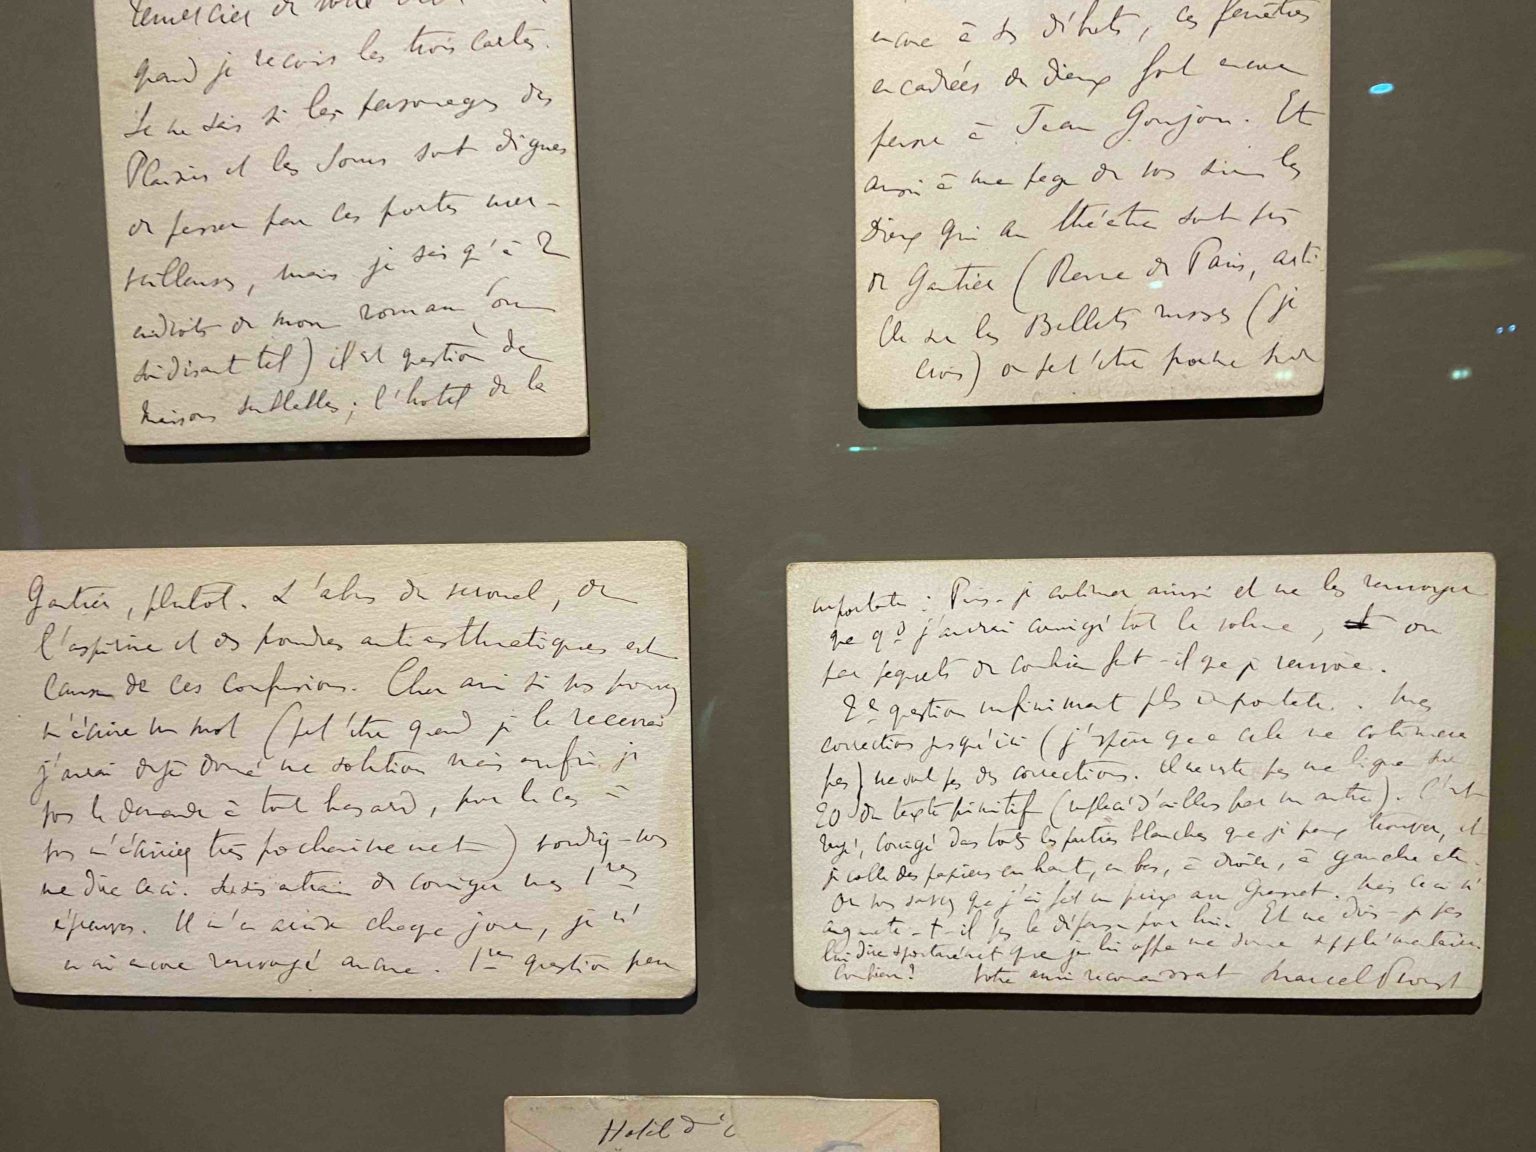 remercier de votre
quand je reçois les trois cartes.
Je ne sais si les personnages des
Plaisirs et les Jours sont dignes
de passer par ces portes mer-
veilleuses, mais je sais qu'à 2
endroits de mon roman (ou
soi disant tel) il est question de
maisons ; l'hotel de la
encore à ses débuts, ces fenêtres
encadrées de dieux font encore
penser à Jean Goujon. Et
aussi à une page de vos sur les
Dieux qui au théâtre sont
de Gautier (Revue de Paris, arti-
cle sur les Ballets russes (je
crois) ou peut'être poème sur
Gautier, plutot. L'abus du veronal, de
l'aspirine et des poudres antiasthmatiques est
cause de ces confusions. Cher ami si vous pouvez
m'écrire un mot (peut'être quand je le recevrai
j'aurai déjà donné une solution mais enfin je
vous le demande à tout hasard, pour le cas où
vous m'écririez très prochainement) voudriez-vous
me dire ceci. Je suis en train de corriger mes 1res
épreuves. Il m'en arrive chaque jour, je n'
en ai encore renvoyé aucune. 1re question peu
importante : Puis-je continuer ainsi et ne les renvoyer
que qd j'aurai corrigé tout le volume, ou
par paquets de combien faut-il que je renvoie.
2e question infiniment plus importante. Mes
corrections jusqu'ici (j'espère que cela ne continuera
pas) ne sont pas des corrections. Il ne reste pas une ligne sur
20 du texte primitif (remplacé d'ailleurs par un autre). C'est
rayé, corrigé dans toutes les parties blanches que je peux trouver, et
je colle des papiers en haut, en bas, à droite, à gauche etc.
Or vous savez que j'ai fait un prix avec Grasset. Mais ceci n'
augmente-t-il pas la dépense pour lui. Et ne dois-je pas
lui dire spontanément que je lui offre une somme supplémentaire
Combien? Votre ami reconnaissant Marcel Proust
Hotel d